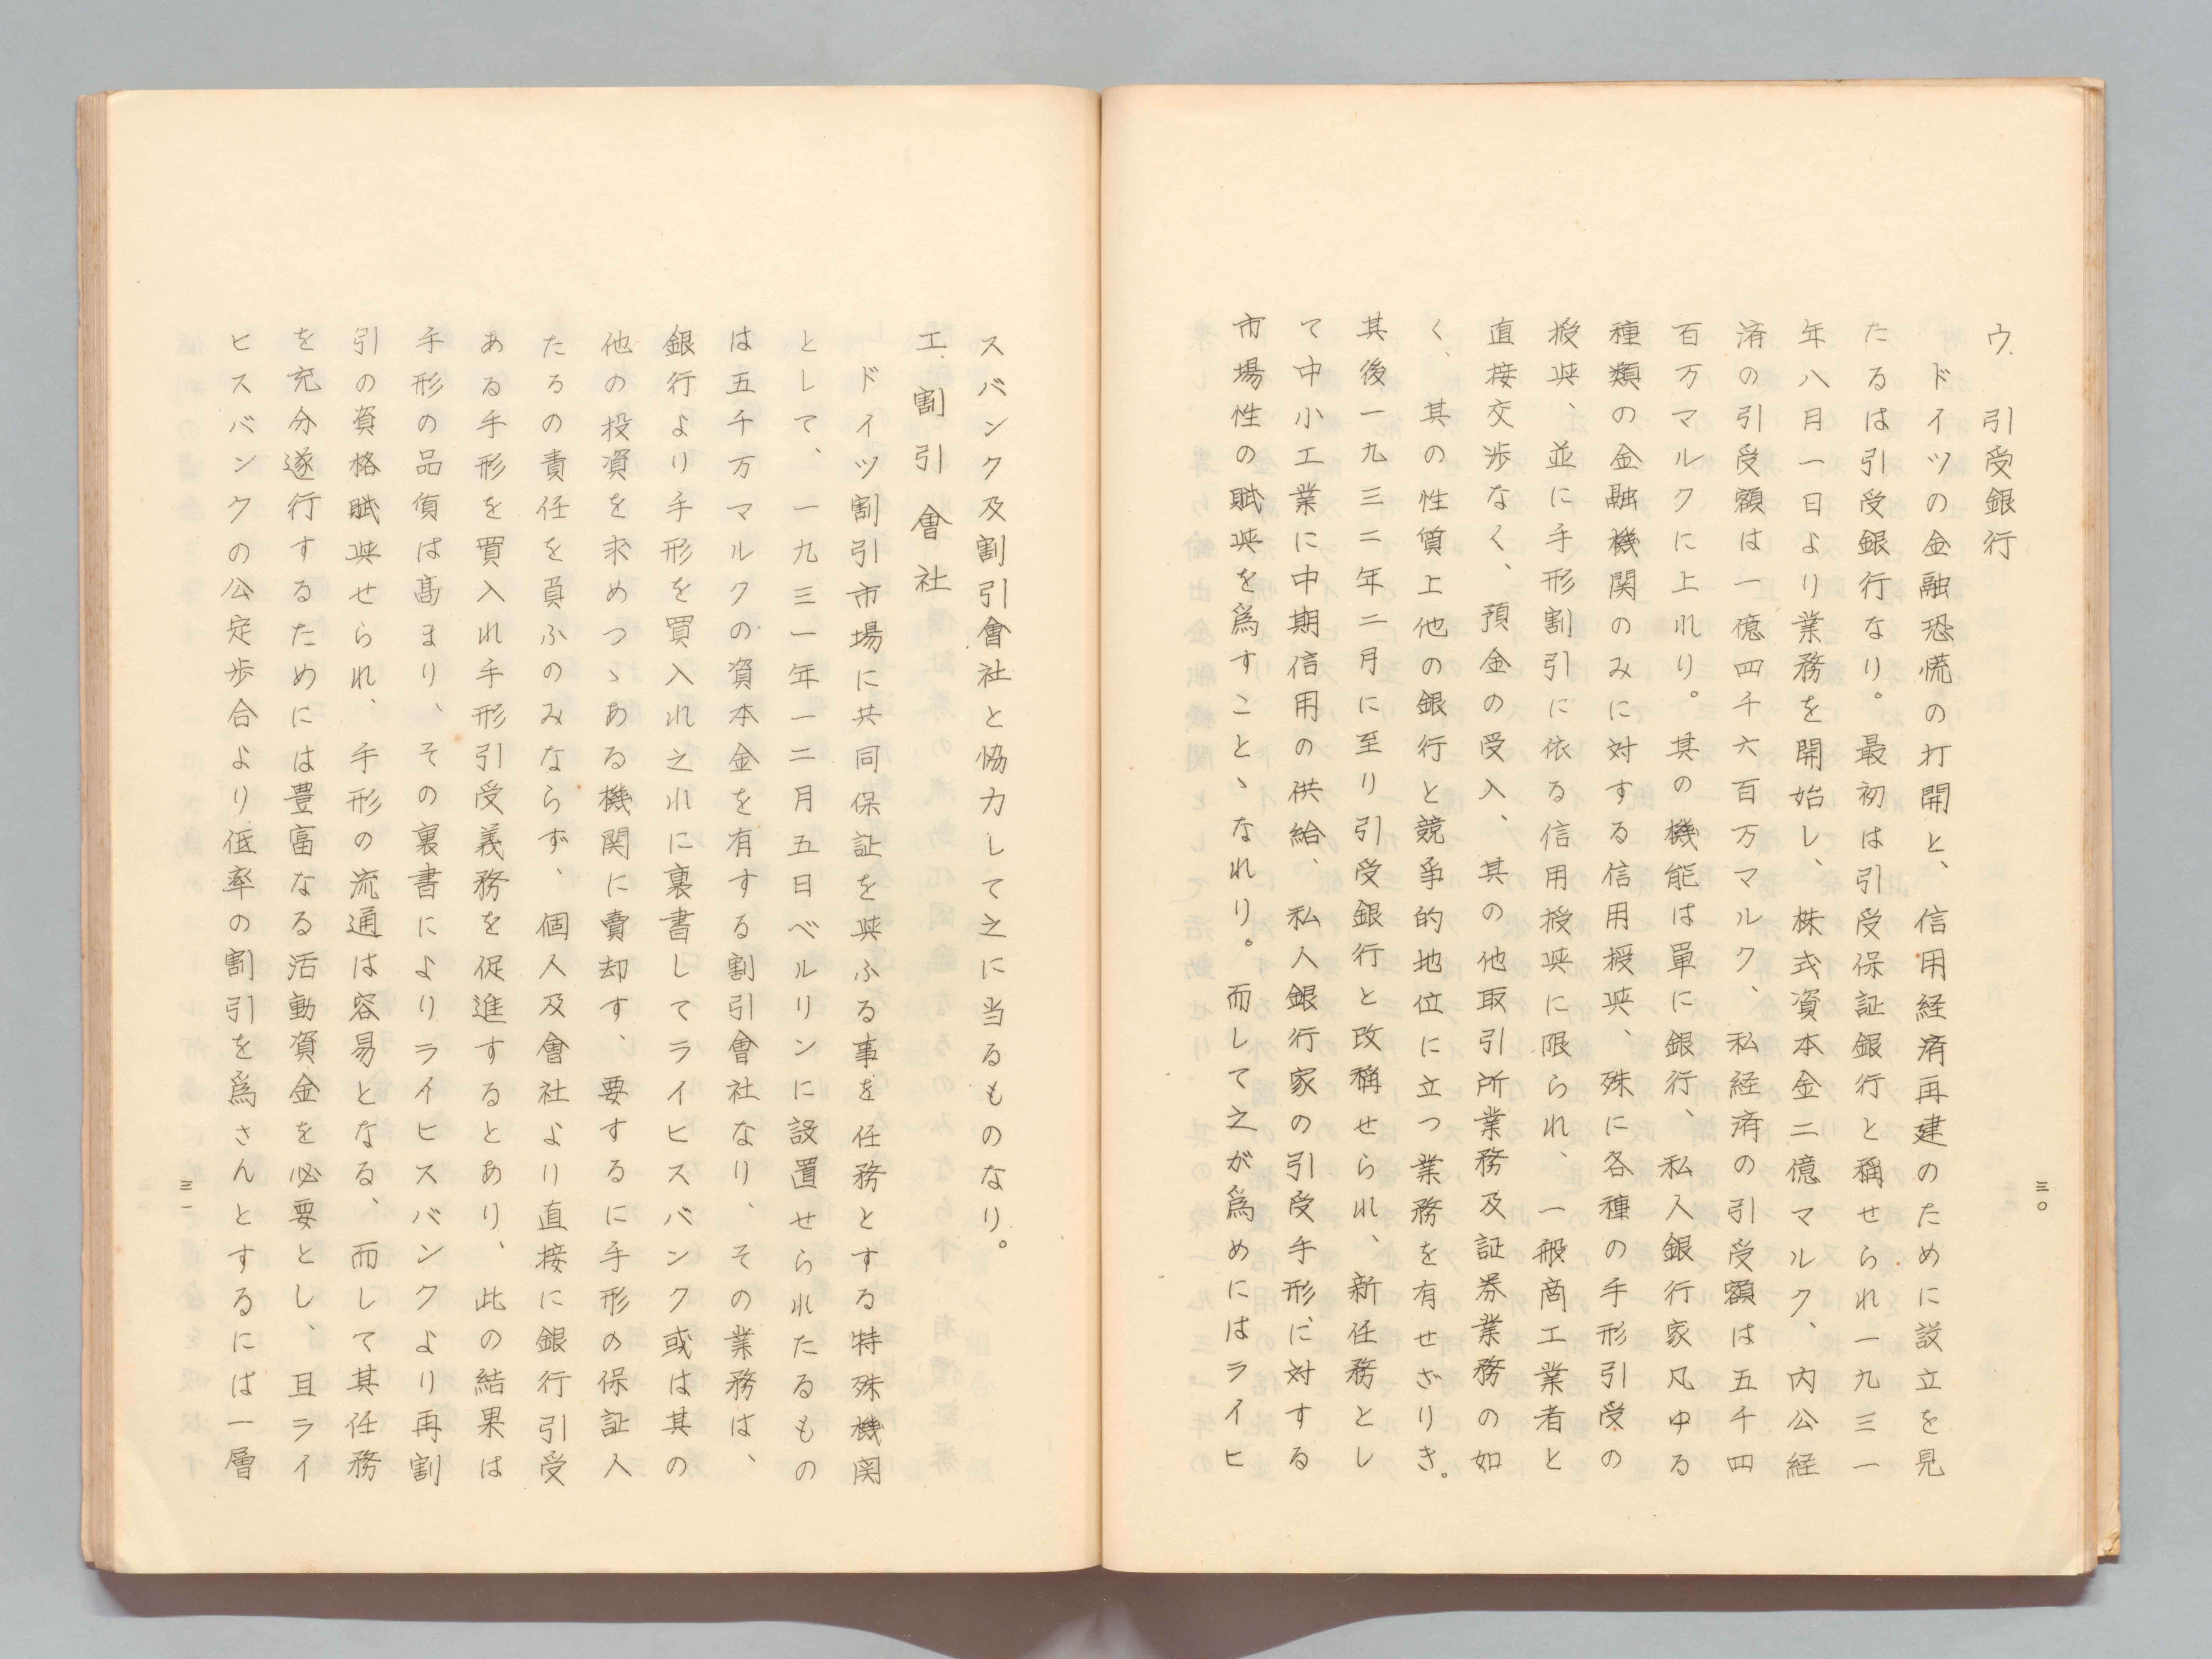 三〇
ウ、引受銀行
ドイツの金融恐慌の打開と、信用経済再建のために設立を見
たるは引受銀行なり。最初は引受保証銀行と稱せられ一九三一
年八月一日より業務を開始し、株式資本金二億マルク、内公経
済の引受額は一億四千六百万マルク、私経済の引受額は五千四
百万マルクに上れり。其の機能は單に銀行、私人銀行家凡ゆる
種類の金融機関のみに対する信用授与、殊に各種の手形引受の
授与、並に手形割引に依る信用授与に限られ、一般商工業者と
直接交渉なく、預金の受入、其の他取引所業務及証券業務の如
く、其の性質上他の銀行と競争的地位に立つ業務を有せざりき。
其後一九三二年二月に至り引受銀行と改稱せられ、新任務とし
て中小工業に中期信用の供給、私人銀行家の引受手形に対する
市場性の賦与を爲すこと、なれり。而して之が爲めにはライヒ
スバンク及割引會社と協力して之に当るものなり。
エ、割引會社
ドイツ割引市場に共同保証を与ふる事を任務とする特殊機関
として、一九三一年一二月五日ベルリンに設置せられたるもの
は五千万マルクの資本金を有する割引會社なり、その業務は、
銀行より手形を買入れ之れに裏書してライヒスバンク或は其の
他の投資を求めつゝある機関に賣却す、要するに手形の保証人
たるの責任を負ふのみならず、個人及會社より直接に銀行引受
ある手形を買入れ手形引受義務を促進するとあり、此の結果は
手形の品價は高まり、その裏書によりライヒスバンクより再割
引の資格賦与せられ、手形の流通は容易となる、而して其任務
を充分遂行するためには豊富なる活動資金を必要とし、且ライ
ヒスバンクの公定歩合より低率の割引を爲さんとするには一層
三一